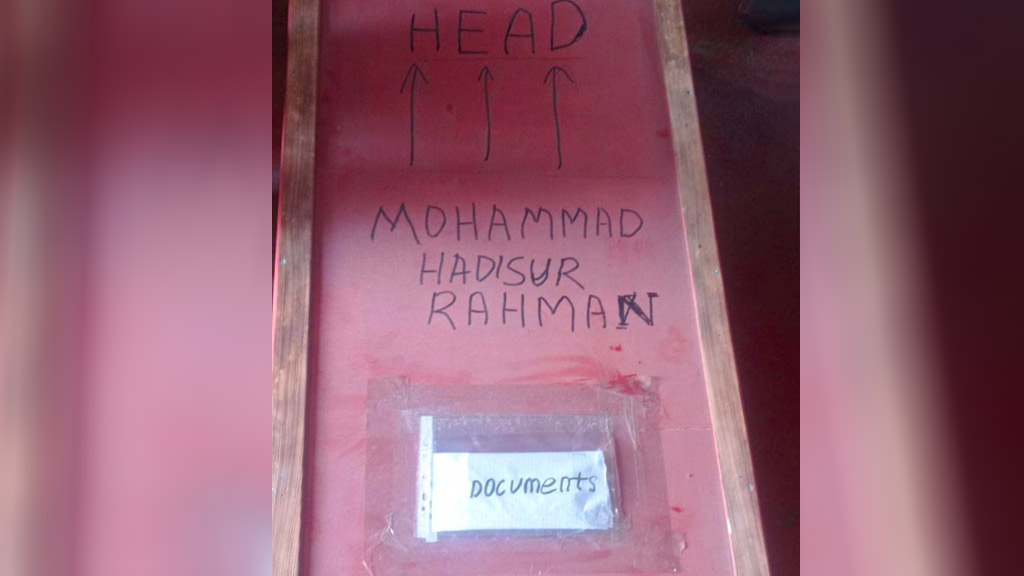 HEAD
MOHAMMAD
HADISUR
RAHMAN
DOCUMENTS